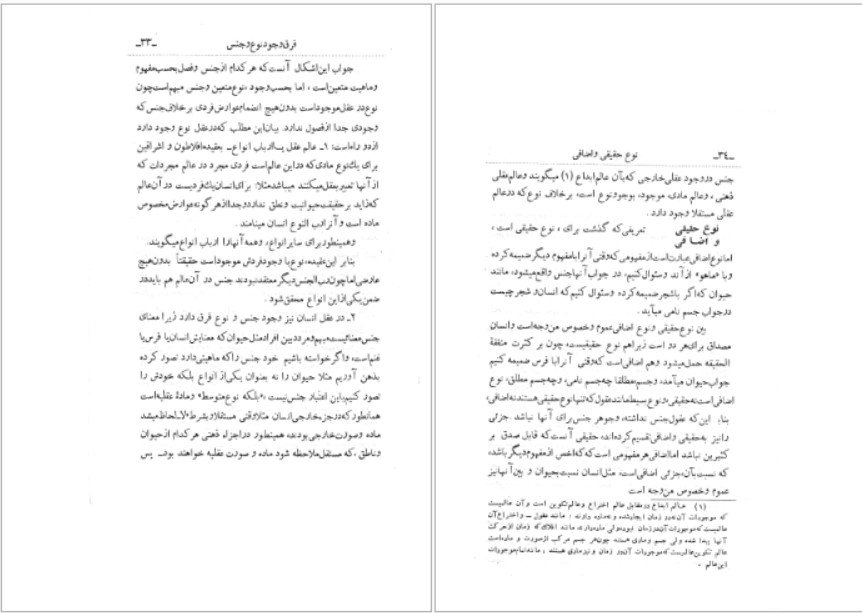 _۳۳_
فرق وجود نوع و جنس
جواب این اشکال آنست که هر کدام از جنس و فصل بحسب مفهوم
و ماهیت متعین است ، اما بحسب وجود ، نوع متعین و جنس مبهم است چون
نوع در عقل موجود است بدون هیچ انضمام عوارض فردی بر خلاف جنس که
وجودی جدا از فصول ندارد. بیان این مطلب که در عقل نوع وجود دارد
از دو راه است: ۱ـ عالم عقل یا ارباب انواع ـ بعقیده افلاطون و اشراقین
برای یک نوع مادی که در این عالم است فردی مجرد در عالم مجردات که
از آنها تعبیر بعقل میکنند میباشد مثلا: برای انسان یک فردیست در آن عالم
که زاید بر حقیقت حیوانیت و نطق ندارد و جدا از هر گونه عوارض مخصوص
ماده است و آنرا رب النوع انسان مینامند .
و همینطور برای سایر انواع، و همه آنها را ارباب انواع میگویند.
بنا بر این عقیده، نوع با وجود فردش موجود است حقیقتاً بدون هیچ
عارضی اما چون رب الجنس دیگر معتقد نبودند جنس در آن عالم هم باید در
ضمن یکی از این انواع محقق شود .
۲ـ در عقل انسان نیز وجود جنس و نوع فرق دارد زیرا معنای
جنس معنائیست مبهم و مردد بین افراد مثل حیوان که معنایش انسان یا فرس یا
غنم است، و اگر خواسته باشیم خود جنس را که ماهیتی دارد تصور کرده
بذهن آوریم مثلا حیوان را نه بعنوان یکی از انواع بلکه خودش را
تصور کنیم باین اعتبار جنس نیست ، «بلکه نوع متوسط» و مادۀ عقلیه است
همانطور که در جزء خارجی انسان مثلا وقتی مستقلا و بشرط «لا» لحاظ میشد
ماده و صورت خارجی بودند، همینطور در اجزاء ذهنی هر کدام از حیوان
و ناطق ، که مستقل ملاحظه شود ماده و صورت عقلیه خواهند بود ـ پس
_۳٤_
نوع حقیقی و اضافی
جنس در وجود عقلی خارجی که بآن عالم ابداع (۱) میگویند و عالم عقلی
ذهنی ، و عالم مادی، موجود، بوجود نوع است، بر خلاف نوع که در عالم
عقلی مستقلا وجود دارد .
نوع حقیقی تعریفی که گذشت برای ، نوع حقیقی است ،
و اضافی
اما نوع اضافی عبارتست از مفهومی که وقتی آنرا با مفهوم دیگر ضمیمه کرده
و با «ماهو» از آند و سئوال کنیم، در جواب آنها جنس واقع میشود، مانند
حیوان که اگر باشجر ضمیمه کرده و سئوال کنیم که انسان و شجر چیست
در جواب جسم نامی میآید .
بین نوع حقیقی و نوع اضافی عموم و خصوص من وجه است و انسان
مصداق برای هر دو است زیرا هم نوع حقیقیست، چون بر کثرت متفقة
الحقیقه حمل میشود و هم اضافی است که وقتی آنرا با فرس ضمیمه کنیم
جواب حیوان میآمد، و جسم مطلقا چه جسم نامی، و چه جسم مطلق، نوع
اضافی است نه حقیقی، و نوع بسیط مانند عقول که تنها نوع حقیقی هستند نه اضافی،
بنابر این که عقول جنس نداشته، و جوهر جنس برای آنها نباشد . جزئی
را نیز به حقیقی و اضافی تقسیم کرده اند، حقیقی آنست که قابل صدق بر
کثیرین نباشد اما اضافی هر مفهومی است که اخص از مفهوم دیگر باشد،
که نسبت بآن، جزئی اضافی است، مثل انسان نسبت بحیوان و بین آنها نیز
عموم و خصوص من وجه است
(۱) عالم ابداع در مقابل عالم اختراع و عالم تکوین است و آن عالمیست
که موجودات آن نه در زمان ایجاد شده و نه ماده دارند : مانند عقول ـ و اختراع آن
عالمیست که موجودات آن در زمان نبوده ولی ماده دارند مانند افلاک که زمان از حرکت
آنها پیدا شده ولی جسم و مادی هستند چون هر جسم مرکب از صورت و ماده است
عالم تکوین عالمیست که موجودات آن در زمان و نیز مادی هستند ، مانند تمام موجودات
این عالم .